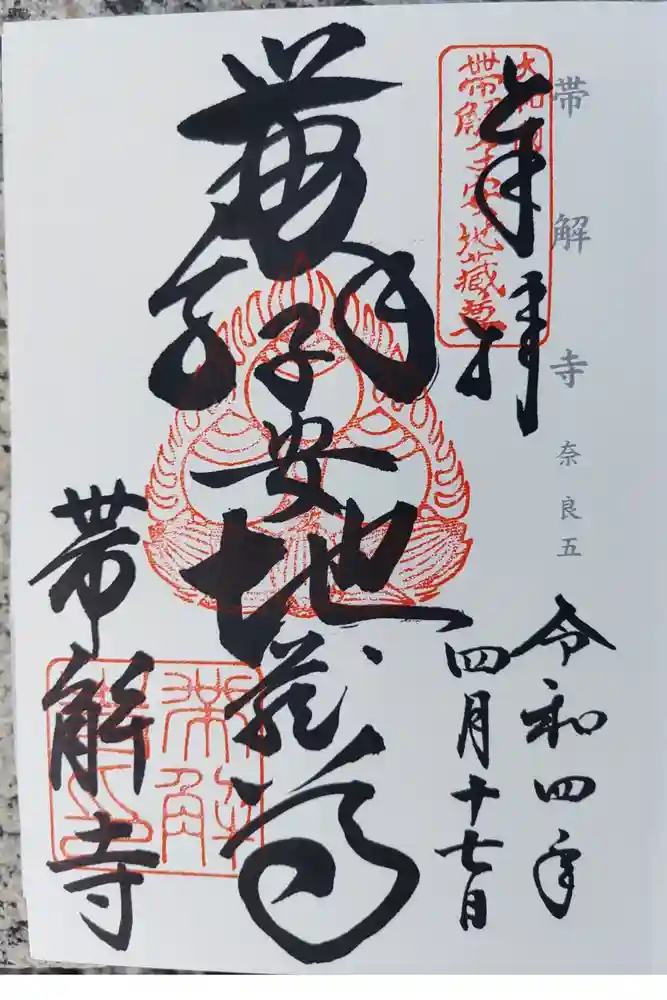 帯解寺 奈良五
奉拝
帯解子安地蔵尊
令和四年
四月十七日
帯解
子安地蔂尊
帯解寺
帯解